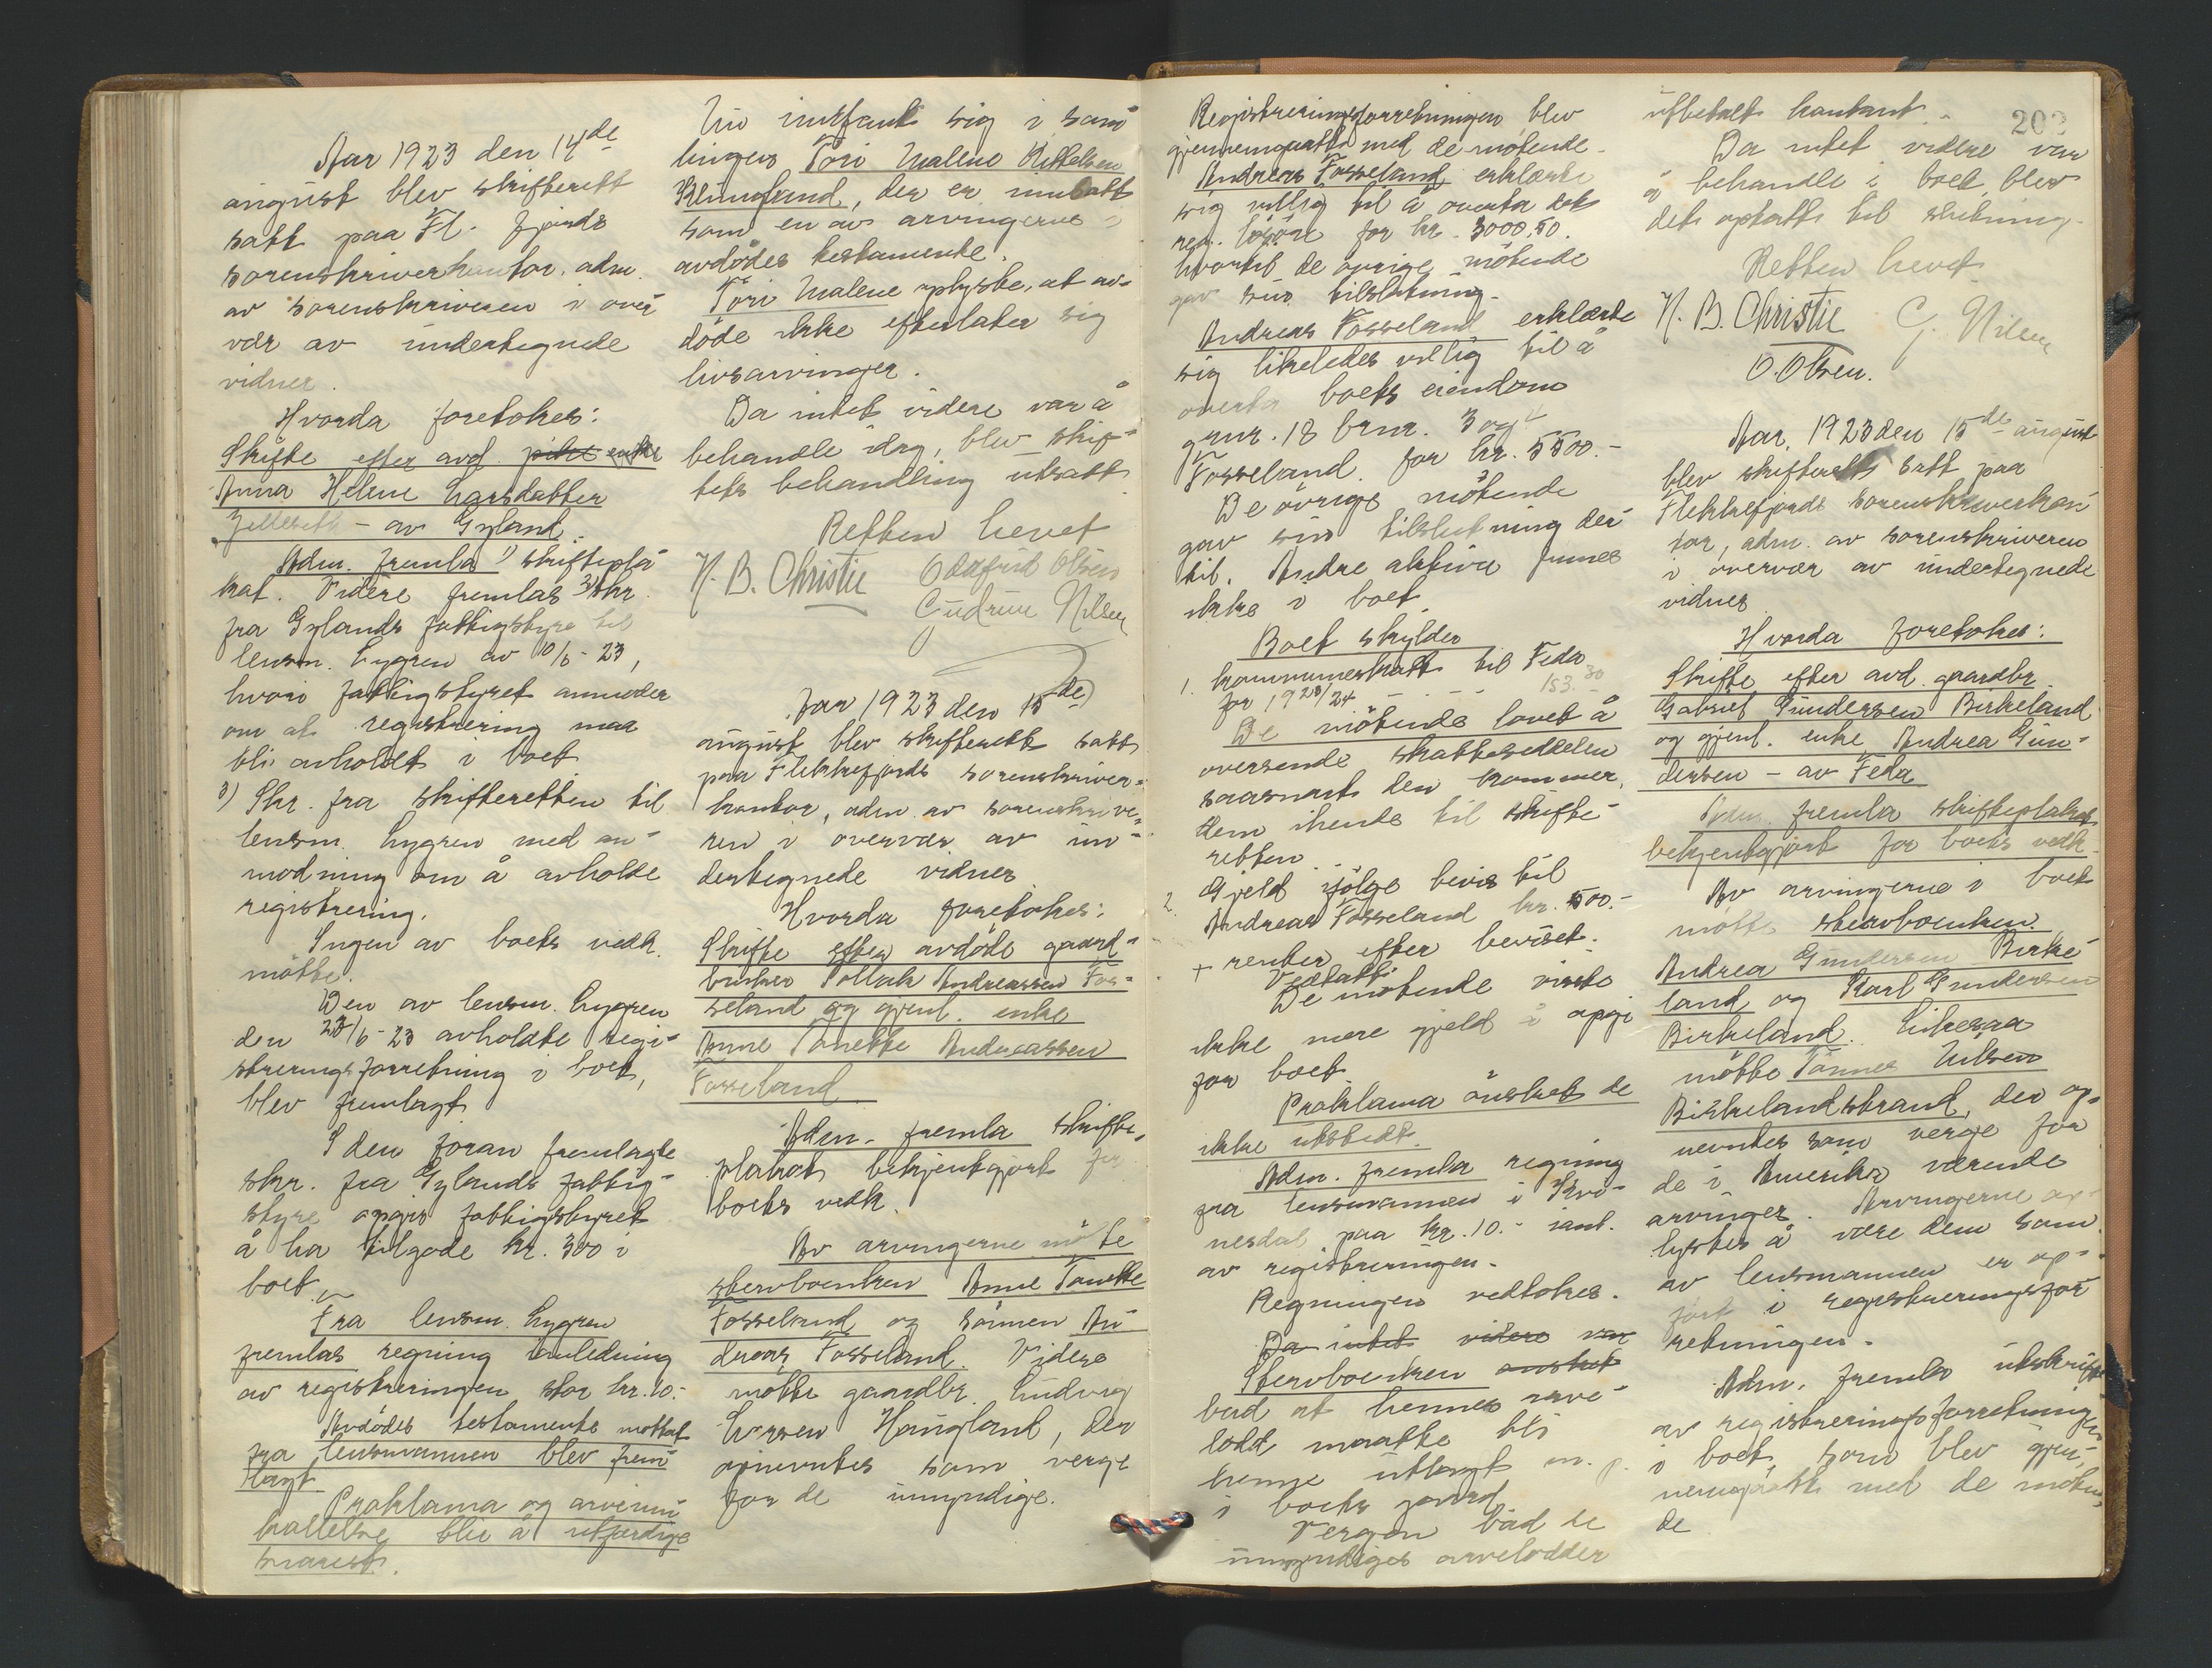 Aar 1923 den 14de
august blev skifterett
satt paa Fl. fjords
sorenskriverkontor, adm.
av sorenskriveren i over
vær av undertegnede
vidner.
Hvorda foretokes:
Skifte efter avd. pike enke
Anna Helene Larsdatter
– av Gyland.
Adm. fremla 1) skiftepla
kat. Videre fremlas 2) skr.
fra Gylands fattigstyre til
lensm. Lygren av 10/6 - 23,
hvori fattigstyret anmoder
om at registrering maa
bli avholdt i boet
3) Skr. fra skifteretten til
lensm. Lygren med an-
modning om å avholde
registrering.
Ingen av boets vedk.
møtte.
Den av lensm. Lygren
den 23/6 - 23 avholdte regi-
streringsforretning i boet,
blev fremlagt
I den foran fremlagte
skr. fra Gylands fattig-
styre opgis fattigstyret
å ha tilgode kr. 300 i
boet.
Fra lensm. Lygren
fremlas regning anledning
av registreringen stor kr. 10.-
Avdødes testamente mottat
fra lensmannen blev frem
lagt
Proklama og arveinn
kallelse blir å utferdige
snarest.
Nu innfant sig i sam
lingen Tori Malene Kittelsen
Klungland, der er innsatt
som en av arvingerne i
avdødes testamente.
Tori Malene oplyste, at av-
døde ikke efterlater sig
livsarvinger.
Da intet videre var å
behandle idag, blev skif-
tets behandling utsatt.
Retten hevet
N. B. Christie Oddfrid Olsen
Gudrun Nilsen
Aar 1923 den 15de
august blev skifterett satt
paa Flekkefjords sorenskriver-
kontor, adm. av sorenskrive-
ren i overvær av un-
dertegnede vidner
Hvorda foretokes:
Skifte efter avdøde gaard-
bruker Tollak Andreassen Fos-
seland og gjenl. enke
Anne Tonette Andreassen
Fosseland.
Adm. fremla skifte-
plakat bekjentgjort for
boets vedk.
Av arvingerne møtte
stervboenken Anne Tonette
Fosseland og sønnen An
dreas Fosseland. Videre
møtte gaardbr. Ludvig
Larsen Haugland, der
opnevntes som verge
for de umyndige.
Registreringsforretningen blev
gjennemgaatt med de møtende.
Andreas Fosseland erklærte
sig villig til å overta det
reg. løsøre for kr. 3000,50.
hvortil de øvrige møtende
gav sin tilslutning.
Andreas Fosseland erklærte
sig likeledes villig til å
overta boets eiendom
grnr. 18 brnr. 3 og 4
Fosseland for kr. 5500.-
De øvrige møtende
gav sin tilslutning der
til. Andre aktiva funnes
ikke i boet.
Boet skylder
1. kommuneskatt til Feda
for 1923/24 153.30
De møtende lovet å
oversende skatteseddelen
saasnart den kommer
dem ihende til skifte-
retten.
2. Gjeld ifølge bevis til
Andreas Fosseland kr. 500.-
+ renter efter beviset.
Vedtatt.
De møtende visste
ikke mere gjeld å opgi
for boet
Proklama ønsket de
ikke utstedt.
Adm. fremla regning
fra lensmannen i Kvi-
nesdal paa kr. 10.- ianl.
av registreringen.
Regningen vedtokes.
Da intet videre var
Stervboenken ønsket
bad at hennes arve-
lodd maatte bli
henne utlagt
i boets jord
Vergen bad de
umyndiges arvelodder
203
utbetalt kontant.
Da intet videre var
å behandle i boet, blev
det optatt til slutning.
Retten hevet
N. B. Christie G. Nilsen
O. Olsen.
Aar 1923 den 15de august
blev skifterett satt paa
Flekkefjords sorenskriverkon
tor, adm. av sorenskriveren
i overvær av undertegnede
vidner
Hvorda foretokes:
Skifte efter avd. gaardbr.
Gabriel Gundersen Birkeland
og gjenl. enke Andrea Gun-
dersen – av Feda
Adm. fremla skifteplakat
bekjentgjort for boets vedk.
Av arvingerne i boet
møtte stervboenken
Andrea Gundersen Birke
land og Karl Gundersen
Birkeland. Likesaa
møtte Tønnes Nilsen
Birkelandstrand, der op-
nevntes som verge for
de i Amerika værende
arvinger. Arvingerne op-
lystes å være dem som
av lensmannen er op-
ført i registreringsfor
retningen.
Adm. fremla utskrift
av registreringsforretningen
i boet, som blev gjen-
nemgaatt med de møten-
de